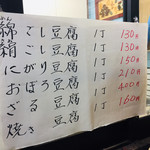 綿ごし豆腐 1丁 130円
絹ごし豆腐 1丁 130円
にがり豆腐 1丁 150円
おぼろ豆腐 1丁 210円
ざる豆腐 1丁 400円
焼き豆腐 1丁 160円